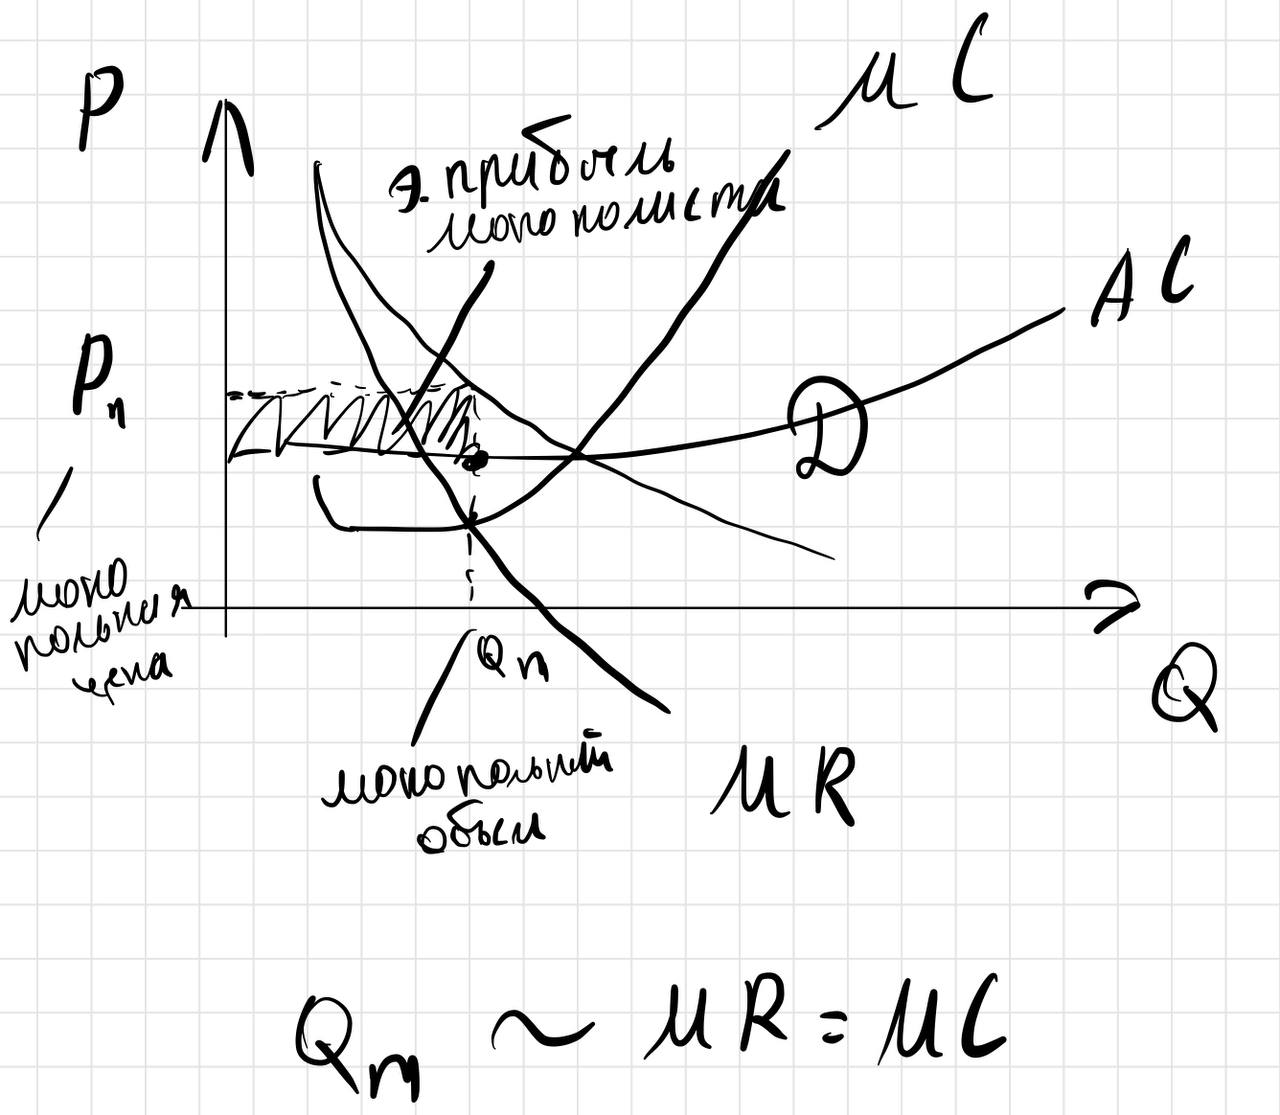 P
MC
э. прибыль
монополиста
AC
Pп
D
моно
польная
цена
Qm
Q
монопольный
объем
MR
Qm ~ MR = MC